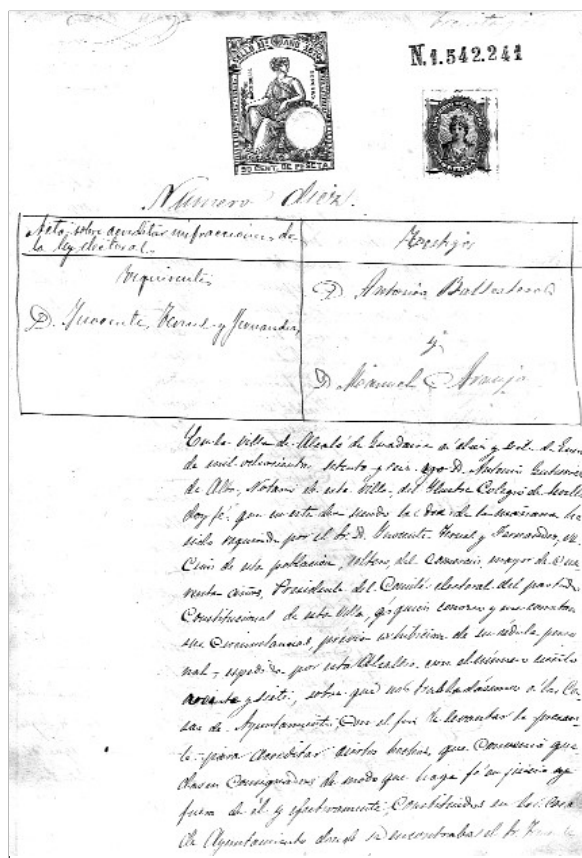 N.1.542.241
50 CENT. DE PESETA
Numero diez.
Acta sobre acreditar infracciones de
la ley electoral.
Testigos
Requirente
D. Antonio Ballesteros
D. Inocente
y Fernandez
y
D. Manuel Araujo
En la villa de Alcalá de Guadaira a diez y seis de Enero
de mil ochocientos setenta y seis, yo D. Antonio Gutierrez
de Alba, Notario de esta villa, del Ilustre Colegio de Sevilla
doy fé: que en este dia siendo la de la mañana he
sido requerido por el Sr. D. Inocente y Fernandez, ve
cino de esta poblacion, soltero, del Comercio, mayor de cua
renta años, Presidente del Comité electoral del partido
Constitucional de esta Villa, á quien conozco y me constan
sus Circunstancias, previa exhibicion de su cédula perso
nal, espedida por esta Alcaldia, con el número
y siete, sobre que nos trasladásemos a las Ca
sas de Ayuntamiento, con el fin de levantar la presen
te para acreditar ciertos hechos, que Convenia que
dasen Consignados de modo que haga fé en juicio y
fuera de él y efectivamente, Constituidos en las Casas
de Ayuntamiento donde se encontraba el Sr.